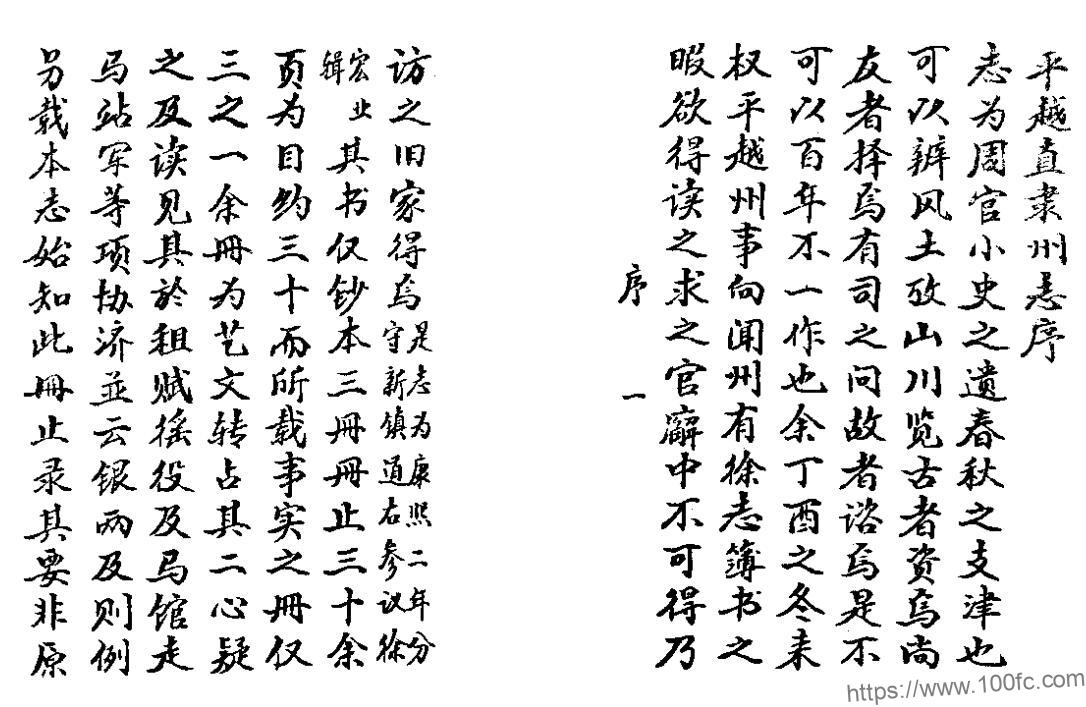 平越直隶州志序
志为周官小史之遗春秋之支津也
可以辨风土攷山川览古者资焉尚
友者择焉有司之问故者谘焉是不
可以百年不一作也余丁酉之冬来
权平越州事向闻州有徐志簿书之
暇欲得读之求之官廨中不可得乃
序 一
访之旧家得焉是志为康熙二年分守新镇道右参议徐
宏业辑其书仅钞本三册册止三十余
页为目约三十而所载事实之册仅
三之一余册为艺文转占其二心疑
之及读见其於租赋徭役及马馆走
马站军等项协济並云银两及则例
另载本志始知此册止录其要非原
https://www.100fc.com